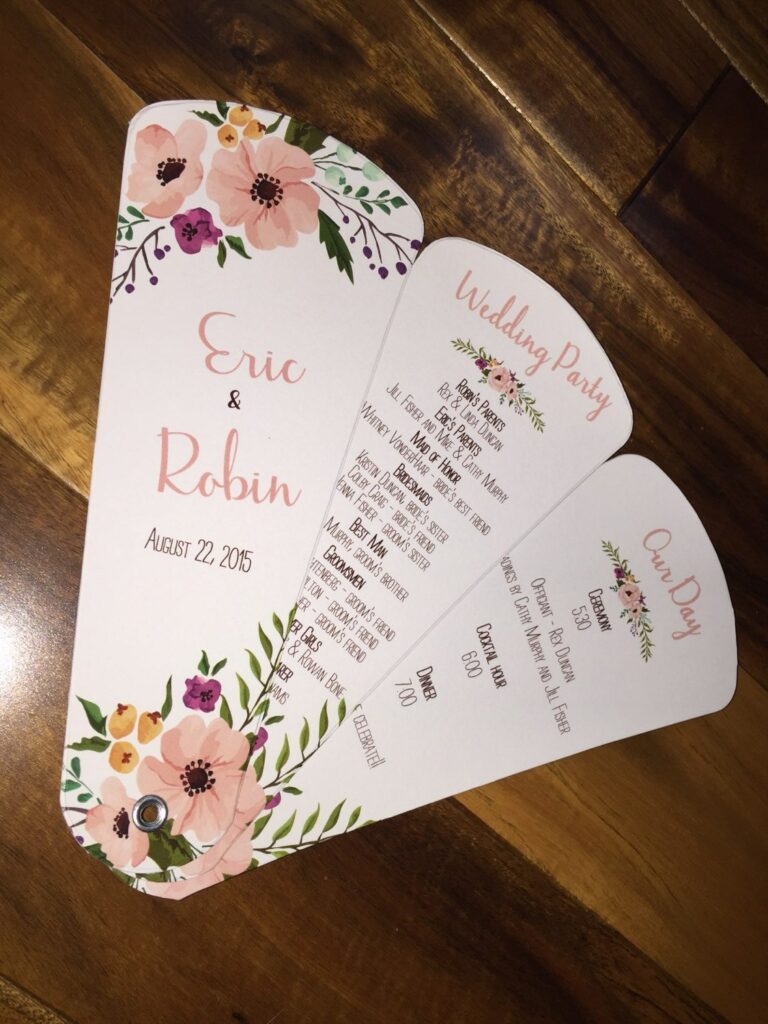 Eric
&
Robin
August 22, 2015
Wedding Party
Robin's Parents
Rex & Linda Duncan
Eric's Parents
Jill Fisher and Mike & Cathy Murphy
Maid of Honor
Whitney VonderHaar - bride's best friend
Bridesmaids
Kristin Duncan, bride's sister
Colby Craig - bride's friend
Jenna Fisher - groom's sister
Best Man
Murphy, groom's brother
Groomsmen
- groom's friend
- groom's friend
- groom's friend
Girls
& Rowan Bone
Our Day
Ceremony
5:30
Officiant - Rex Duncan
by Cathy Murphy and Jill Fisher
Cocktail hour
6:00
Dinner
7:00
celebrate!!